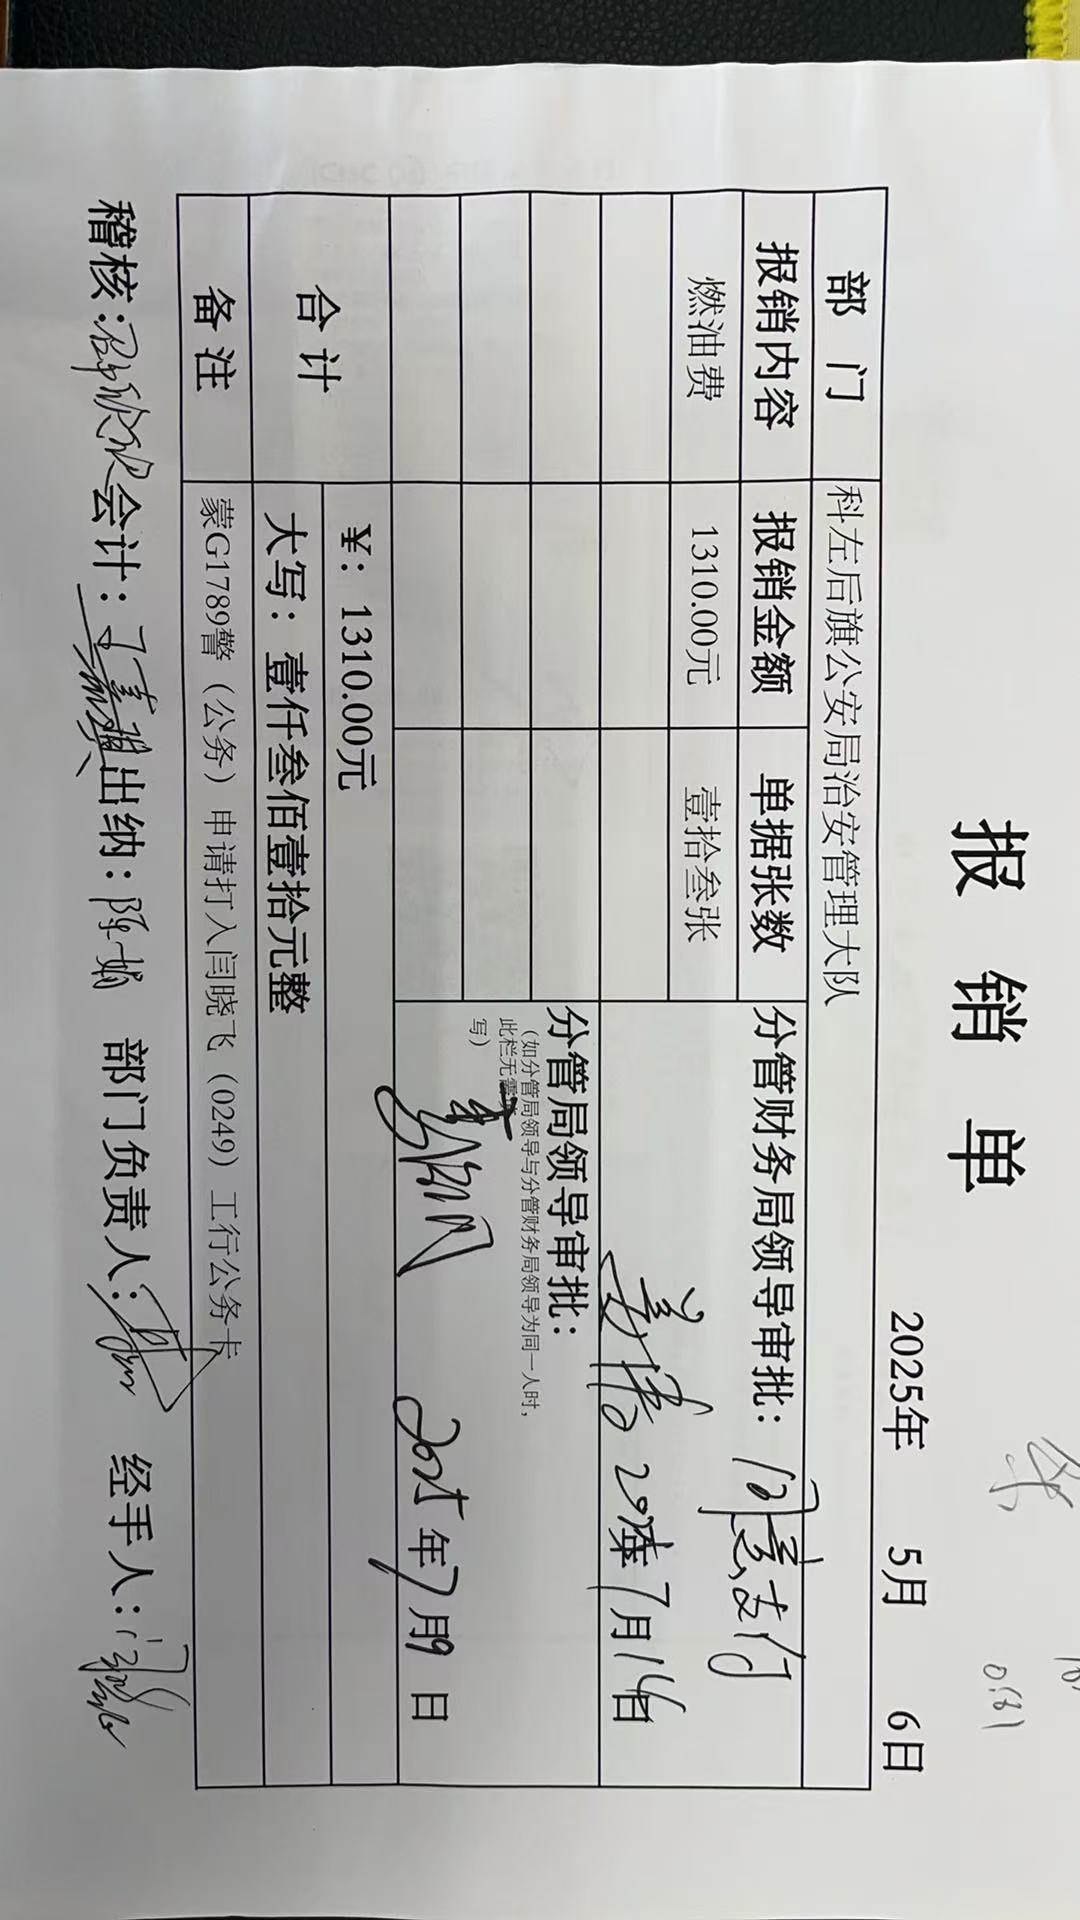 报 销 单
2025年 5月 6日
部 门 科左后旗公安局治安管理大队
报销内容 报销金额 单据张数 分管财务局领导审批：同意支付
燃油费 1310.00元 壹拾叁张
2025年7月14日
分管局领导审批：
（如分管局领导与分管财务局领导为同一人时，
此栏无需填
写）
2025年7月9日
合计 ¥：1310.00元
大写：壹仟叁佰壹拾元整
备注 蒙G1789警（公务）申请打入闫晓飞（0249）工行公务卡
稽核： 会计： 出纳：陈娟 部门负责人： 经手人：